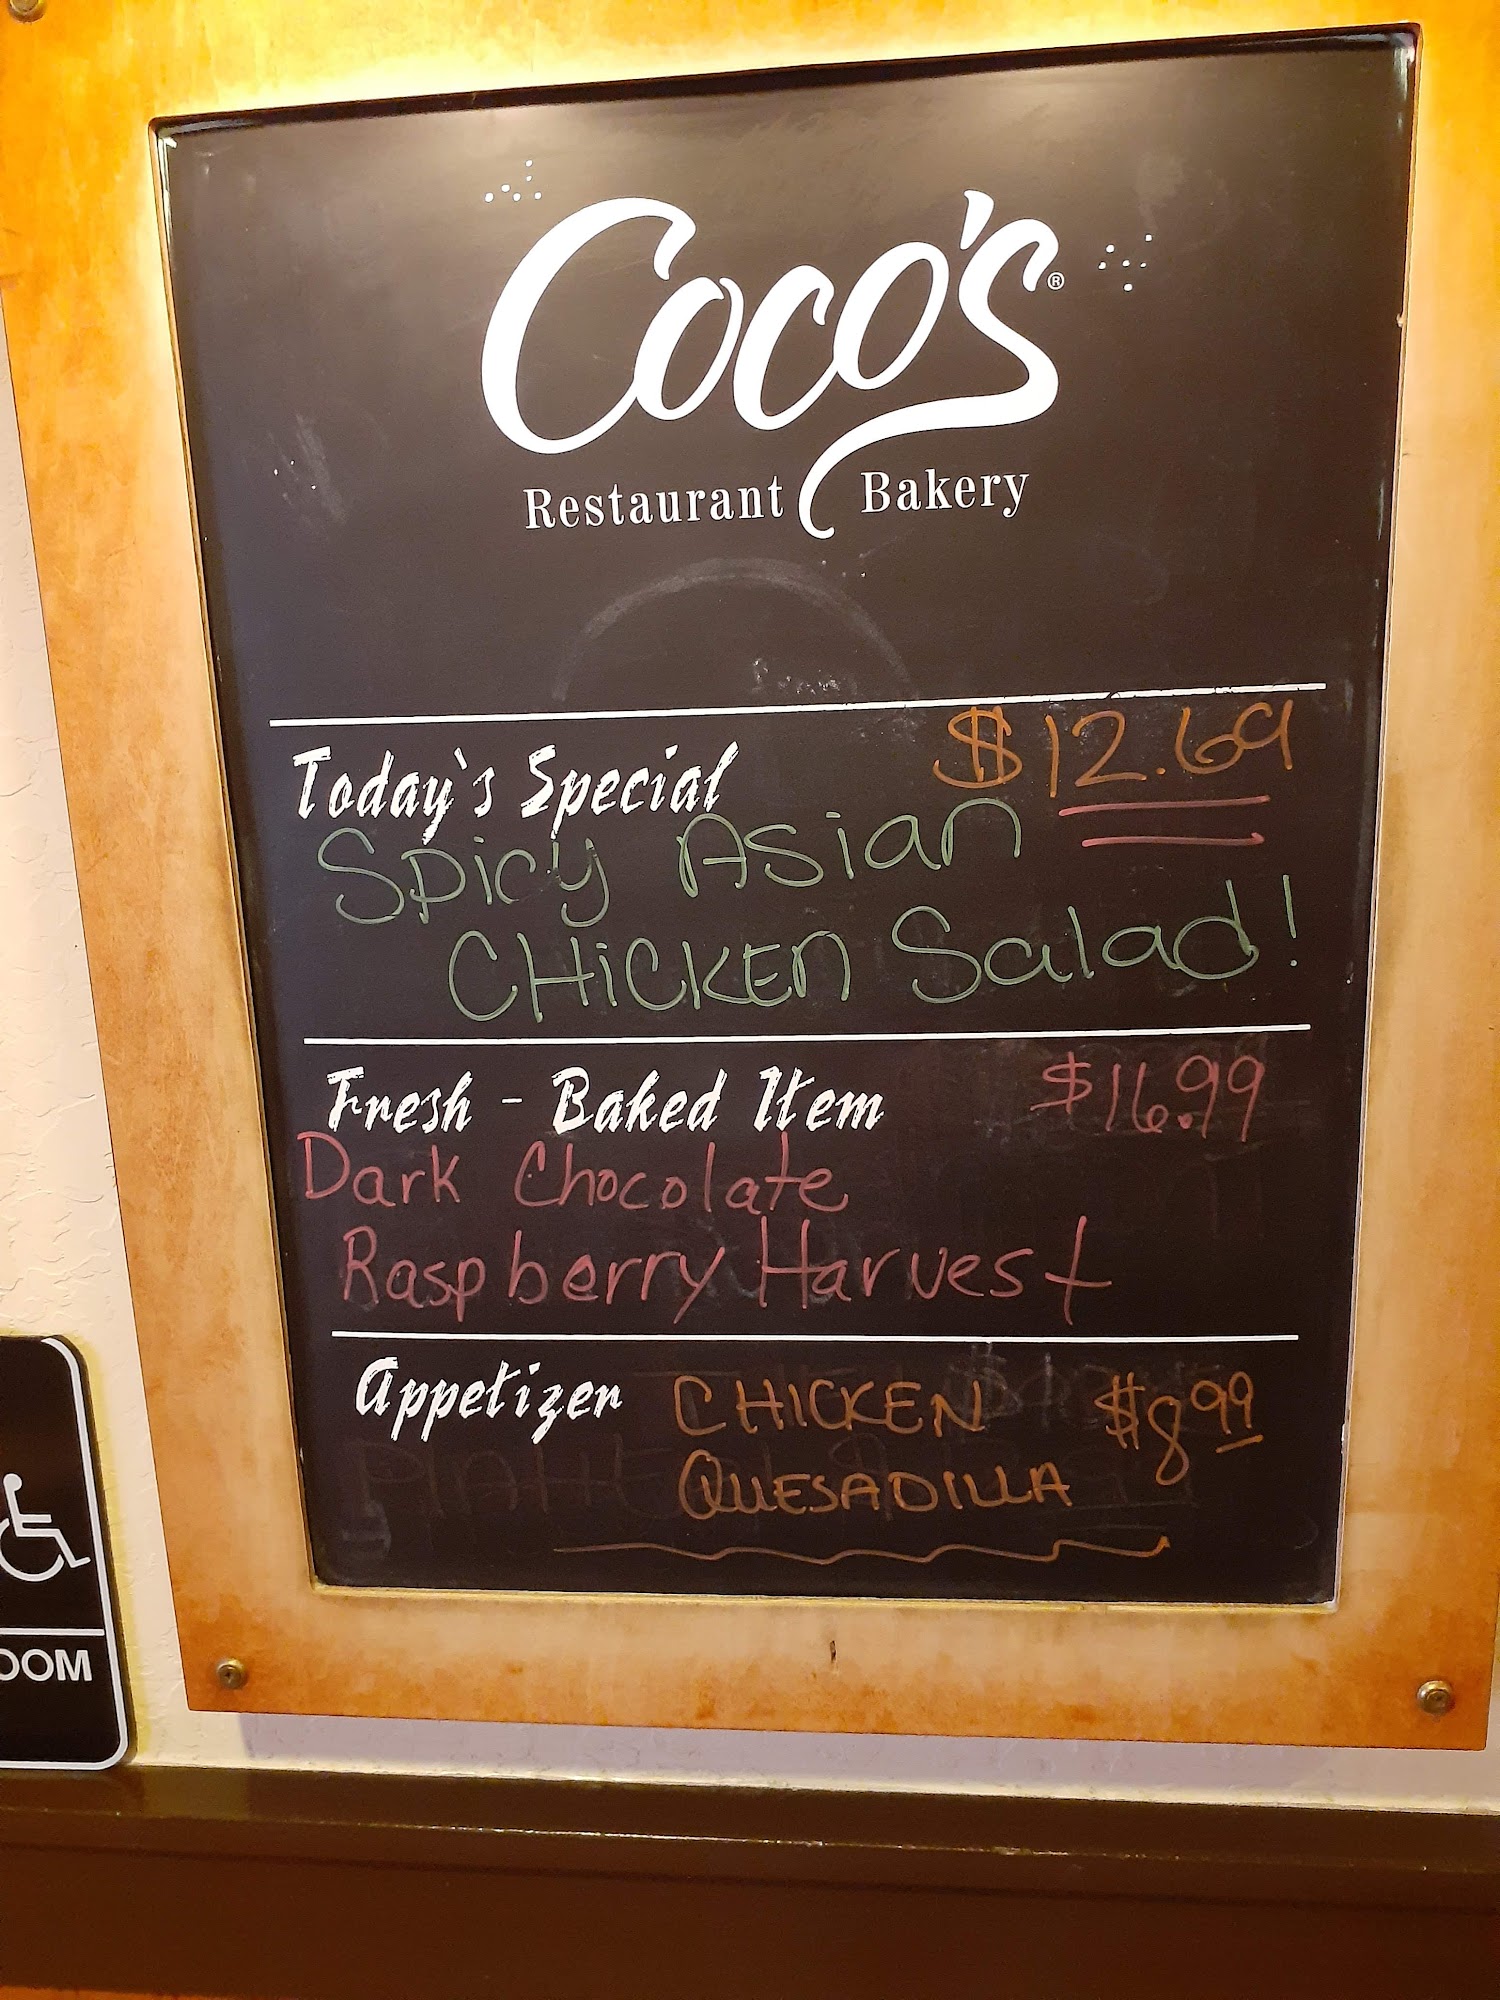 Coco's®
Restaurant Bakery
Today's Special $12.69
Spicy Asian
CHiCKEN Salad!
Fresh - Baked Item $16.99
Dark Chocolate
Raspberry Harvest
Appetizer CHICKEN $8.99
QUESADILLA
OOM